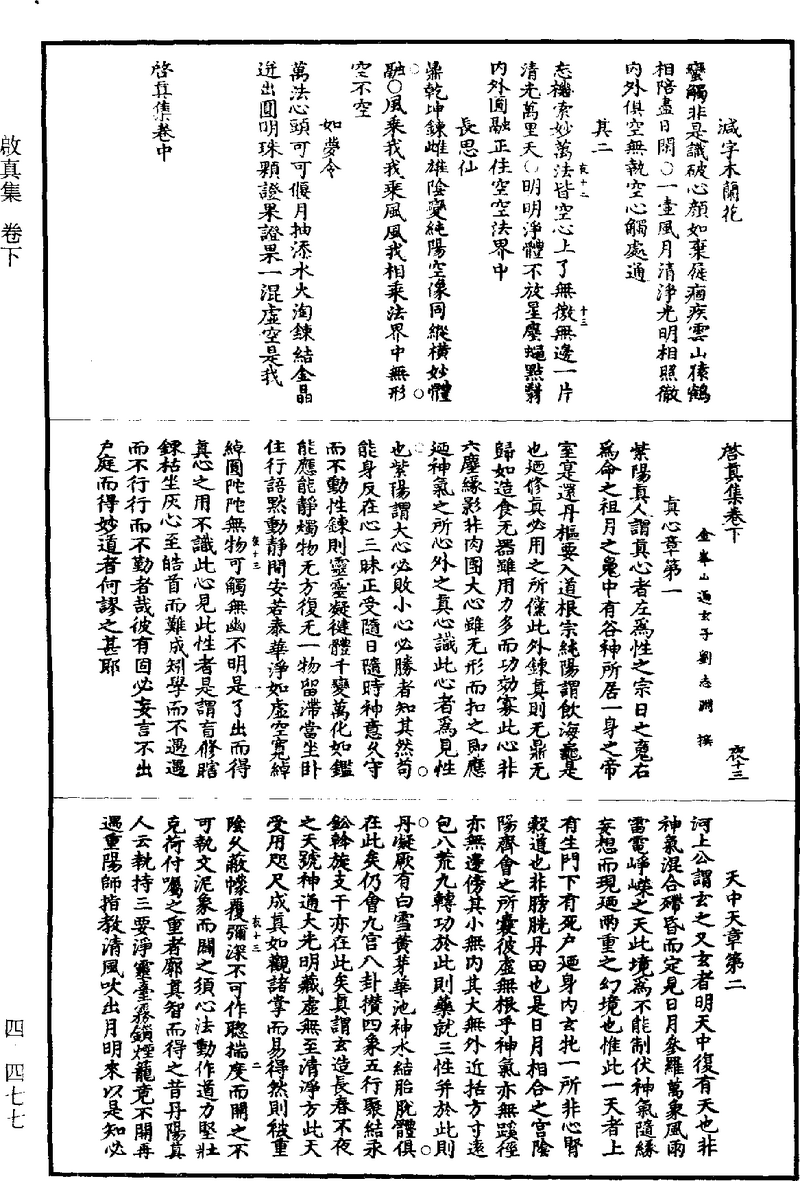 啟真集 卷下
四·四七七
減字木蘭花
蠻觸非是識破心顏如棄屣痼疾雲山猿鶴
相陪盡日閑○一壺風月清淨光明相照徹
內外俱空無執空心觸處通
其二
忘機索妙萬法皆空心上了無微無邊一片
清光萬里天○明明淨體不放星塵蠅點翳
內外圓融正住空空法界中
長思仙
鼎乾坤鍊雌雄陰變純陽空像同縱橫妙體
融○風乘我我乘風風我相乘法界中無形
空不空
如夢令
萬法心頭可可偃月抽添水火淘鍊結金晶
迸出圓明珠顆證果證果一混虛空是我
啓真集卷中
啓真集卷下
夜十三
金峯山通玄子劉志淵撰
真心章第一
紫陽真人謂真心者左為性之宗日之魂右
為命之祖月之魄中有谷神所居一身之帝
室寔還丹樞要入道根宗純陽謂飲海龜是
也廼修真必用之所儻此外鍊真則无鼎无
歸如造食无器雖用力多而功効寡此心非
六塵緣影非肉團大心雖无形而扣之即應
廼神氣之所心外之真心識此心者為見性
也紫陽謂大心必敗小心必勝者知其然苟
能身反在心三昧正受隨日隨時神意久守
而不動性鍊則靈靈凝健體千變萬化如鑑
能應能靜燭物无方復无一物留滯當坐卧
住行語默動靜間安若泰華淨如虛空寬綽
綽圓陀陀無物可觸無幽不明是了出而得
真心之用不識此心見此性者是謂盲修瞎
鍊枯坐灰心至皓首而難成矧學而不遇遇
而不行行而不勤者哉彼有固必妄言不出
戶庭而得妙道者何謬之甚耶
天中天章第二
河上公謂玄之又玄者明天中復有天也非
神氣混合礡昏而定見日月參羅萬象風雨
雷電崢嶸之天此境為不能制伏神氣隨緣
妄想而現廼兩重之幻境也惟此一天者上
有生門下有死戶廼身內玄牝一所非心腎
穀道也非膀胱丹田也是日月相合之宮陰
陽齊會之所囊彼虛無根乎神氣亦無蹊徑
亦無邊傍其小無內其大無外近括方寸遠
包八荒九轉功於此則藥就三性并於此則
丹凝厥有白雪黃芽華池神水結胎脫體俱
在此矣仍會九宮八卦攢四象五行聚結汞
鈆斡旋支干亦在此矣真謂玄造長春不夜
之天號神通大光明藏虛無至清淨方此天
受用咫尺成真如觀諸掌而易得然則彼重
陰久蔽幪覆彌深不可作聦揣度而開之不
可執文泥象而闢之須心法動作道力堅壯
克荷付囑之重者廓真智而得之昔丹陽真
人云執持三要淨靈臺霧鎖煙籠竟不開再
遇重陽師指教清風吹出月明來以是知必